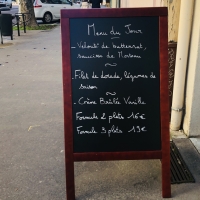 Menu du Jour
- Velouté de butternut,
saucisse de Morteau
- Filet de dorade, légumes de
saison
- Crème Brûlée Vanille
Formule 2 plats 16€
Formule 3 plats 19€